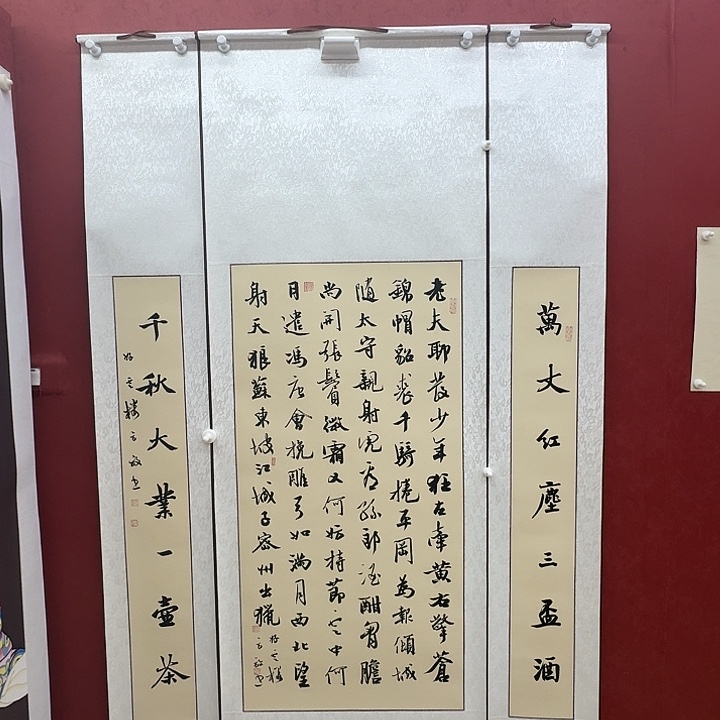 萬丈紅塵三盃酒
老夫聊發少年狂左牽黃右擎蒼
錦帽貂裘千騎捲平岡為報傾城
隨太守親射虎看孫郎酒酣胷膽
尚開張鬢微霜又何妨持節雲中何
日遣馮唐會挽雕弓如滿月西北望
射天狼蘇東坡江城子密州出獵
千秋大業一壺茶